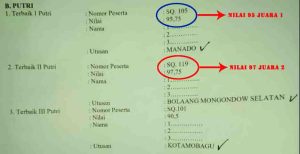 B. PUTRI
1. Terbaik I Putri : Nomor Peserta : SQ. 105
: Nilai : 95,75
: Nama : 1
2
3
: Utusan MANADO
NILAI 95 JUARA 1
2. Terbaik II Putri : Nomor Peserta : SQ. 119
: Nilai : 97,75
: Nama : 1
2
3
: Utusan BOLAANG MONGONDOW SELATAN
NILAI 97 JUARA 2
3. Terbaik III Putri : Nomor Peserta : SQ.101
: Nilai : 90,5
: Nama : 1
2
3
: Utusan : KOTAMOBAGU